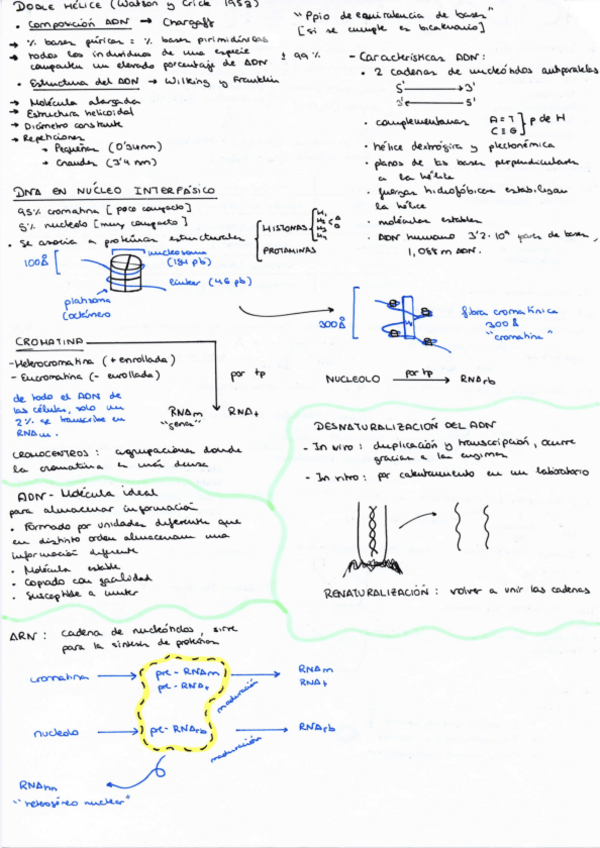 DOBLE HÉLICE (Watson y Crick 1953)
• Composición ADN → Chargaff
→ % bases púricas = % bases pirimidínicas
→ todos los individuos de una especie
comparten un elevado porcentaje de ADN
± 99 %
"Ppio de equivalencia de bases"
[si se cumple es bicatenario]
• Estructura del ADN → Wilking y Franklin
→ Molécula alargada
→ Estructura helicoidal
→ Diámetro constante
→ Repeticiones
→ Pequeñas (0'34nm)
→ Grandes (3'4 nm)
- Características ADN:
• 2 cadenas de nucleótidos antiparalelas
5' → 3'
3' ← 5'
• complementarias A=T C≡G } p de H
• hélice dextrógira y plectonémica
• planos de las bases perpendiculares
a la hélice
• fuerzas hidrofóbicas estabilizan
la hélice
• moléculas estables
• ADN humano 3'2·10⁹ pares de bases,
1,088 m ADN.
DNA EN NÚCLEO INTERFÁSICO
95% cromatina [poco compacto]
5% nucleolo [muy compacto]
• Se asocia a proteínas estructurales
HISTONAS
PROTAMINAS
100Å
nucleosoma
linker (46 pb)
platisoma
(octámero
300Å
fibra cromatínica
300Å
"cromatina"
CROMATINA
- Heterocromatina (+ enrollada)
- Eucromatina (- enrollada)
de todo el ADN de
las células, solo un
2% se transcribe en
RNAm.
por tp
RNAm
"genes"
RNAt
NUCLEOLO por tp → RNArb
CROMOCENTROS: agrupaciones donde
la cromatina es más densa
ADN - Molécula ideal
para almacenar información
• Formado por unidades diferentes que
en distinto orden almacenan una
información diferente
• Molécula estable
• Copiado con facilidad
• Susceptible a mutar
DESNATURALIZACIÓN DEL ADN
- In vivo: duplicación y transcripción, ocurre
gracias a las enzimas
- In vitro: por calentamiento en un laboratorio
RENATURALIZACIÓN: volver a unir las cadenas
ARN: cadena de nucleótidos, sirve
para la síntesis de proteínas
cromatina → pre-RNAm
pre-RNAt
maduración
RNAm
RNAt
nucleolo → pre-RNArb
maduración
RNArb
RNAhn
"heterogéneo nuclear"